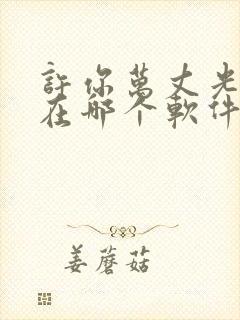 許你萬丈光
在那个軟件
姜蘑菇